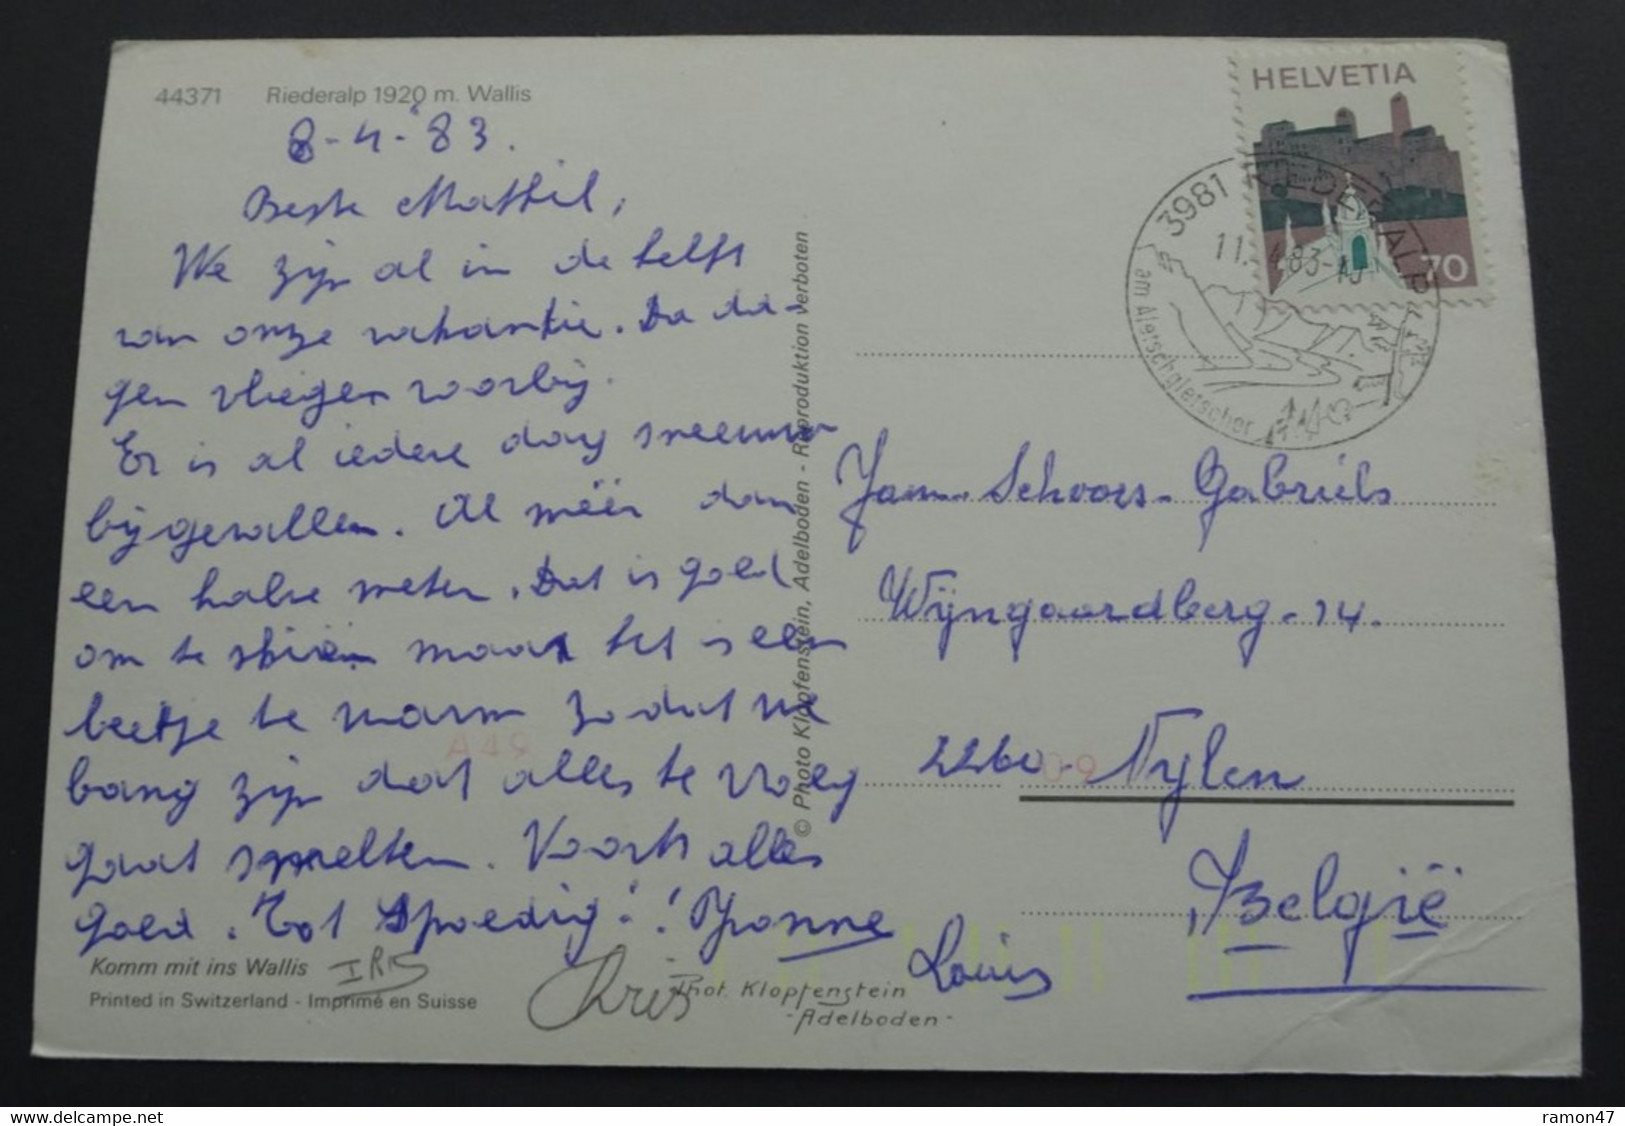 44371 Riederalp 1920 m. Wallis
8-4-'83.
Beste Mathil,
We zijn al in de helft
van onze vakantie. De da-
gen vliegen voorbij.
Er is al iedere dag sneeuw
bijgevallen. Al méér dan
een halve meter. Dat is goed
om te skiën maar het is een
beetje te warm zodat we
bang zijn dat alles te vlug
gaat smelten. Voorts alles
goed. Tot spoedig! Yvonne
Louis
IRIS
Kris
Komm mit ins Wallis
Printed in Switzerland - Imprimé en Suisse
Phot. Klopfenstein
- Adelboden -
© Photo Klopfenstein, Adelboden - Reproduktion verboten
A49
09
HELVETIA
70
3981 RIEDERALP
11.4.83-10
am Aletschgletscher
Fam. Schoors-Gabriels
Wijngaardberg-14.
2260 Nylen
België
ramon47